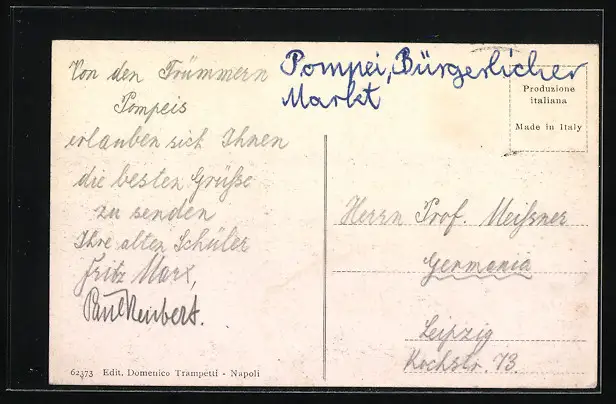 Pompei, Bürgerlicher
Markt
Von den Trümmern
Pompeis
erlauben sich Ihnen
die besten Grüße
zu senden
Ihre alten Schüler
Fritz Marx,
Paul Neubert.
Produzione
italiana
Made in Italy
Herrn Prof. Meißner
Germania
Leipzig
Kochstr. 73.
62373 Edit. Domenico Trampetti - Napoli